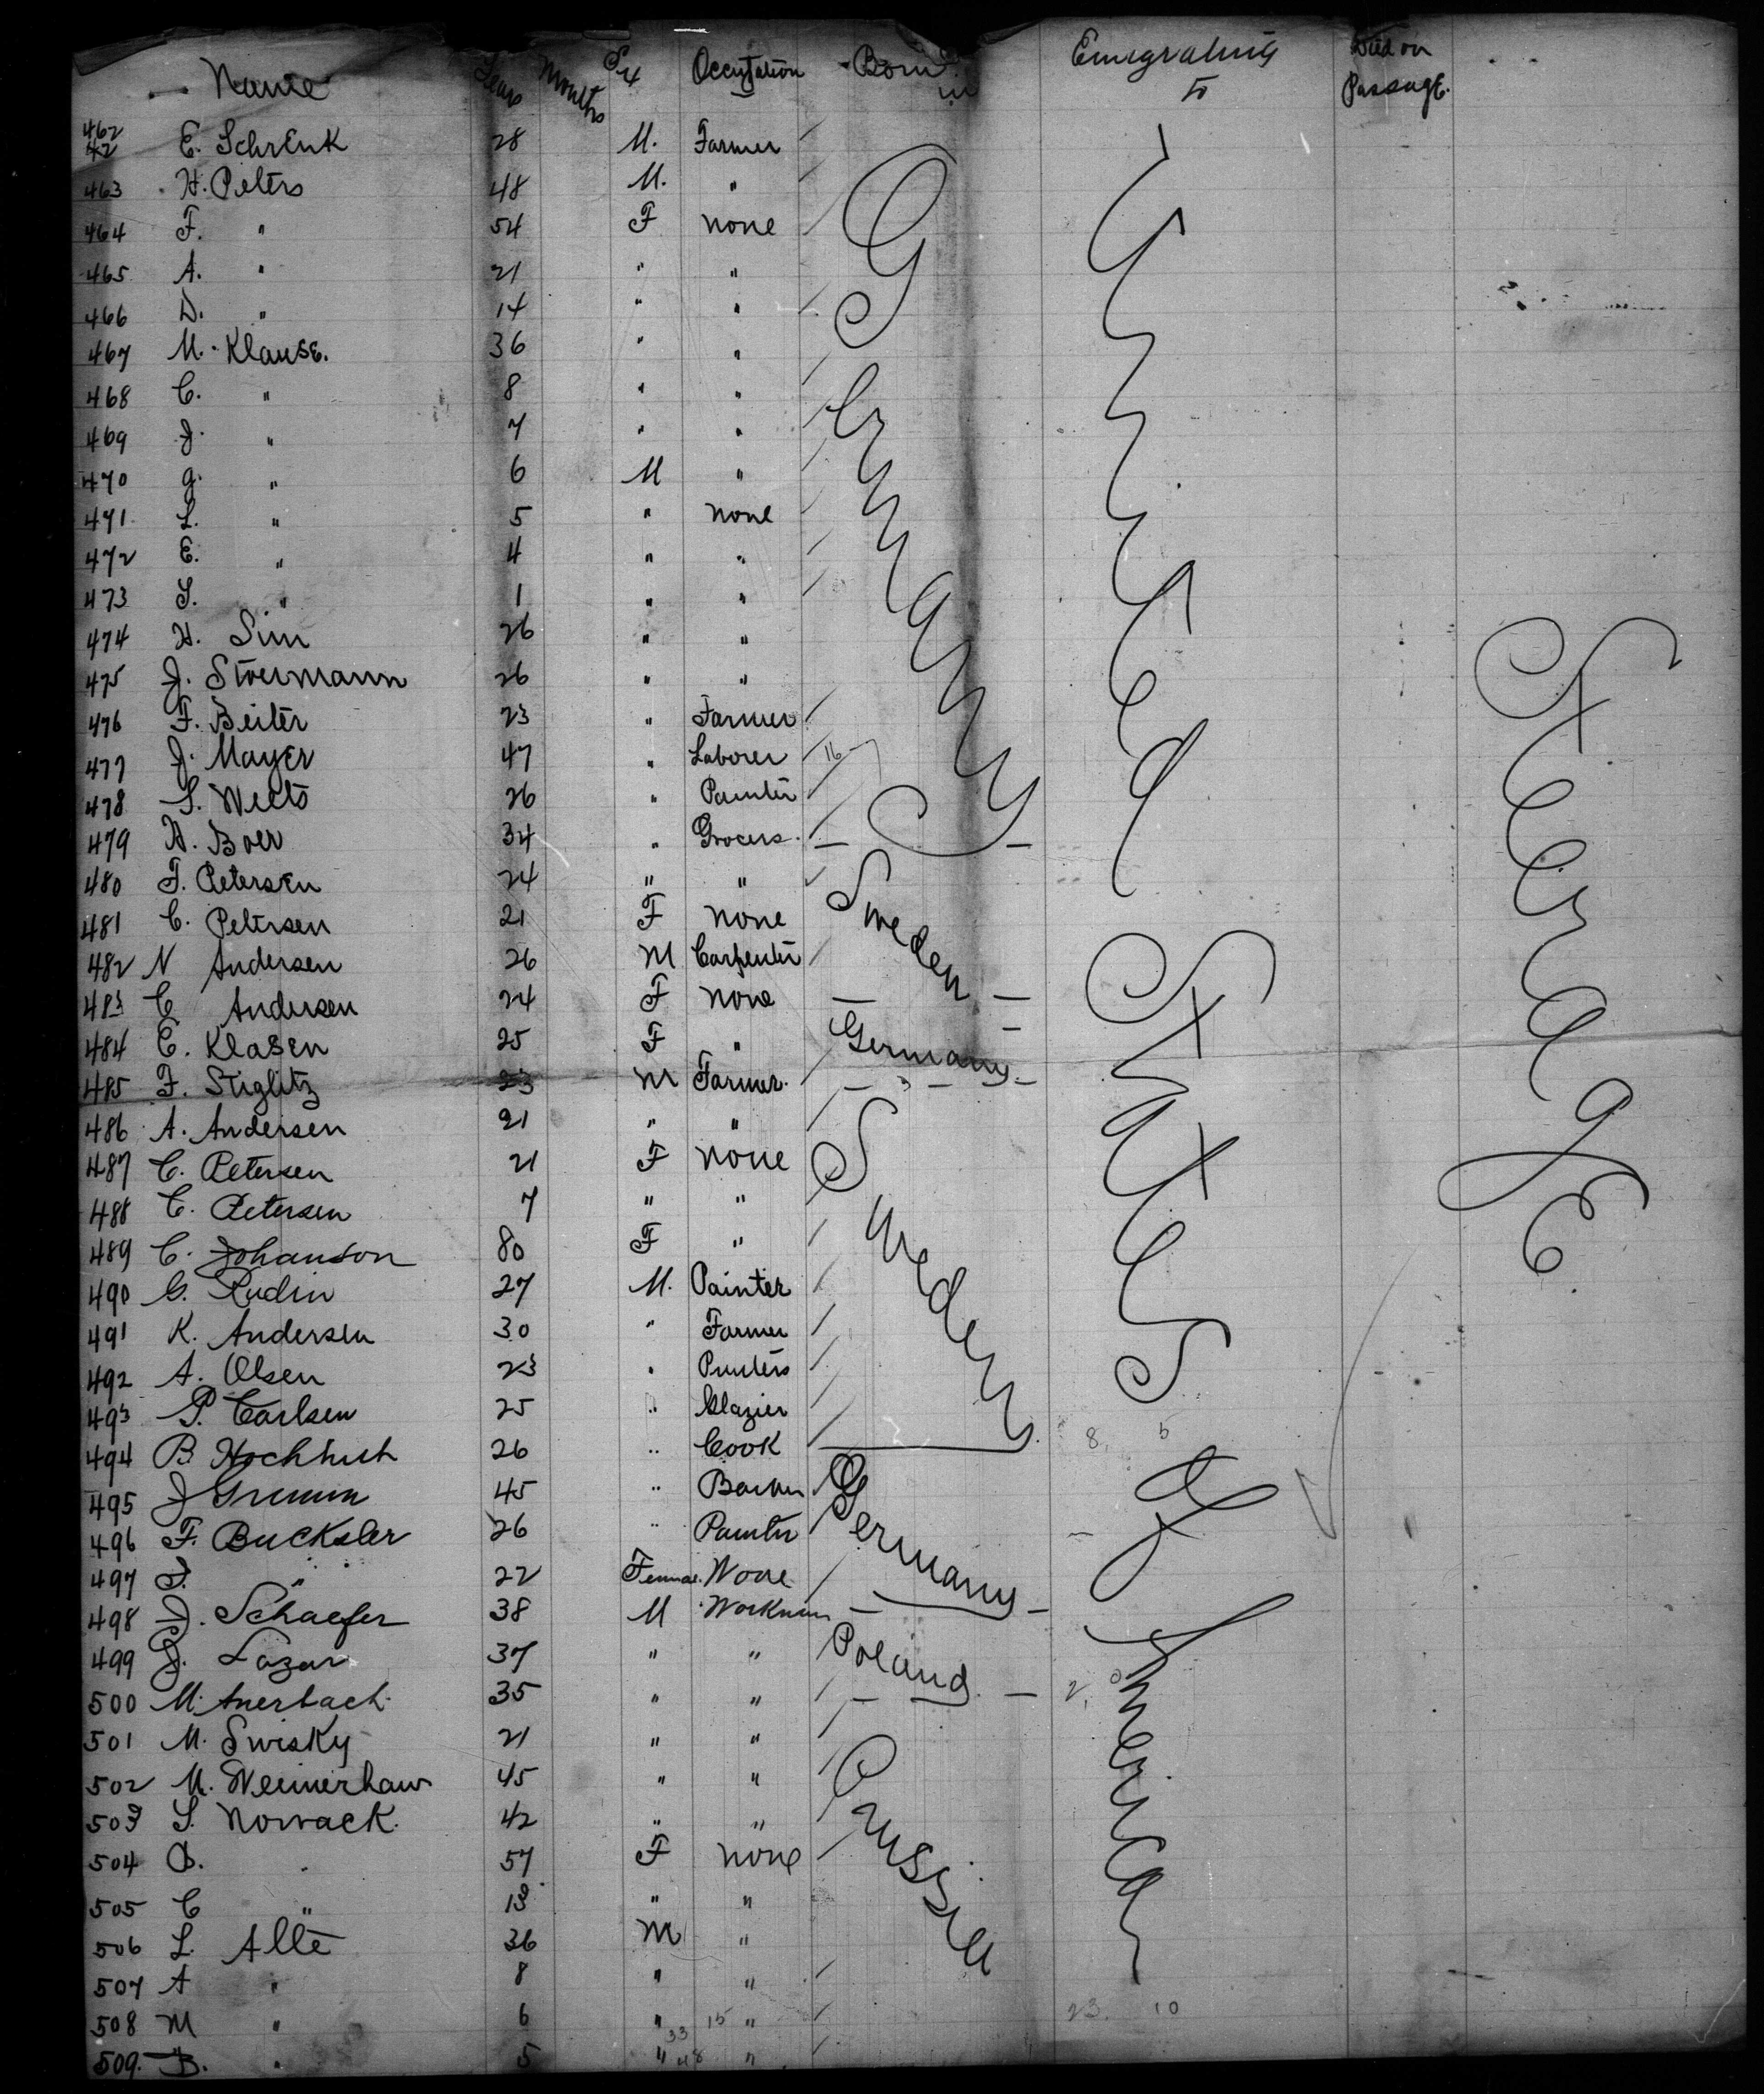 Name Years Months Sex Occupation Born in Emigrating to Died on Passage.
462 42 E. Schrenk 28 M. Farmer
463 H. Peters 48 M. "
464 F. " 54 F none
465 A. " 21 " "
466 D. " 14 " "
467 M. Klause. 36 " "
468 C. " 8 " "
469 J. " 7 " "
470 G. " 6 M "
471 L. " 5 " none
472 E. " 4 " "
473 S. " 1 " "
474 H. Sim 26 " "
475 J. Stoermann 26 " "
476 F. Beiter 23 " Farmer
477 J. Mayer 47 " Laborer 16
478 S. Weets 26 " Painter
479 H. Boer 34 " Grocers.
Germany
480 F. Petersen 24 " "
481 C. Petersen 21 F none
482 N Andersen 26 M Carpenter
483 C Andersen 24 F none
Sweden
484 E. Klasen 25 F " Germany
485 F. Stiglitz 23 M Farmer. "
486 A. Andersen 21 " "
487 C. Petersen 21 F none
488 C. Petersen 7 " "
489 C. Johanson 80 F "
490 G. Rudin 27 M. Painter
491 K. Andersen 30 " Farmer
492 A. Olsen 23 "
493 P. Carlsen 25 " Glazier
Sweden
United States
Steerage
494 B. Hochhut 26 " Cook 8, 5
495 J Grumm 45 "
496 F. Bucksler 26 " Painter
497 " 22 None
498 J. Schaefer 38 M Workman
Germany
499 J. Lazar 37 " "
500 M. Auerbach 35 " " 2, 0
Poland
501 M. Swisky 21 " "
502 M. 45 " "
503 S. Norvack. 42 " "
504 57 F none
505 C " 13 " "
506 L. Alte 36 M "
507 A " 8 " "
508 M " 6 " 15 " 23. 10
509. B. " 5 " 33 48 "
Prussia
of America